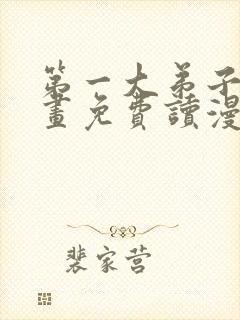 第一大弟子
畫免費讀漫
裴家营